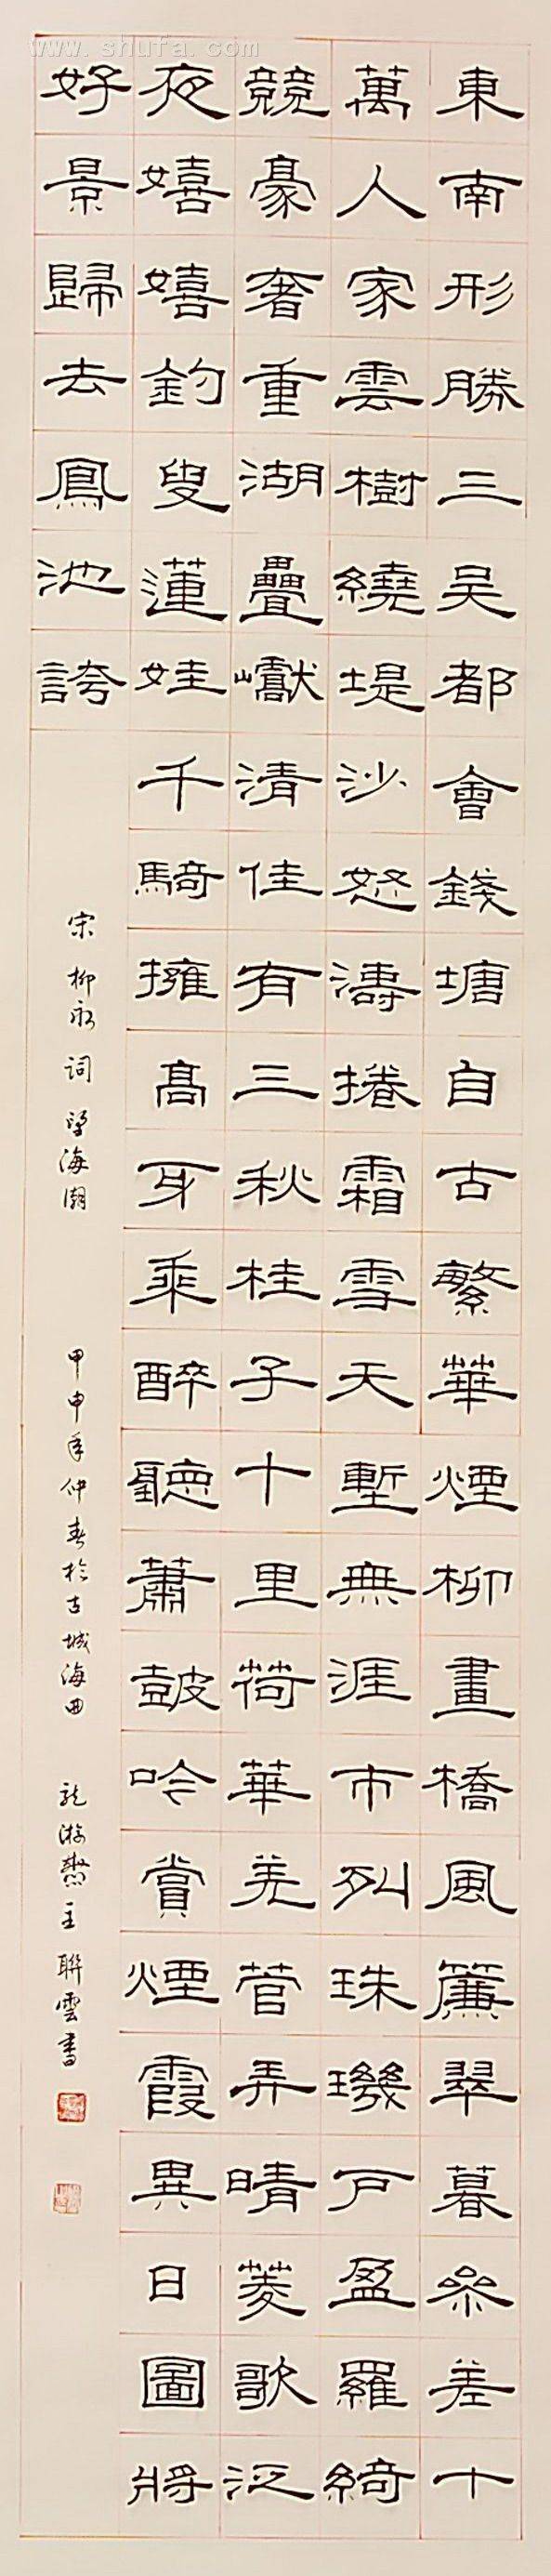 東南形勝三吴都會錢塘自古繁華煙柳畫橋風簾翠暮參差十
萬人家雲樹繞堤沙怒濤捲霜雪天塹無涯市列珠璣戶盈羅綺
競豪奢重湖疊巘清佳有三秋桂子十里荷華羌管弄晴菱歌泛
夜嬉嬉釣叟蓮娃千騎擁高牙乘醉聽蕭鼓吟賞煙霞異日圖將
好景歸去鳳池誇
宋柳永詞望海潮
甲申年仲春於古城海曲
龍游齋主聯雲書
www.shufa.com